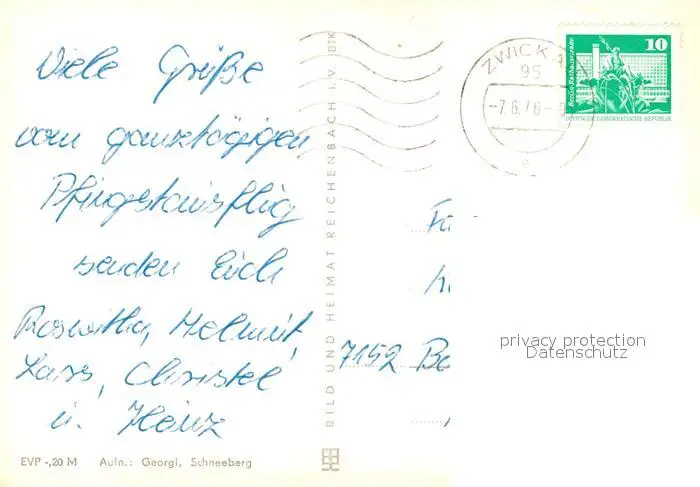 Viele Grüße
vom ganztägigen
Pfingstausflug
senden Euch
Roswitha, Helmut,
Lars, Christel
u. Heinz
EVP -,20 M Aufn.: Georgi, Schneeberg
BILD UND HEIMAT REICHENBACH I. V. BTK
ZWICKAU
95
-7.6.76-
e
10
Berlin, Rathausstraße
DEUTSCHE DEMOKRATISCHE REPUBLIK
7152
privacy protection
Datenschutz